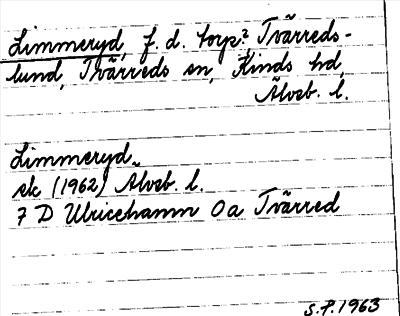 Limmeryd, f. d. torp? Tvärreds-
lund, Tvärreds sn, Kinds hd,
Älvsb. l.
Limmeryd
ek (1962) Älvsb. l.
7 D Ulricehamn 0a Tvärred
S.P. 1963